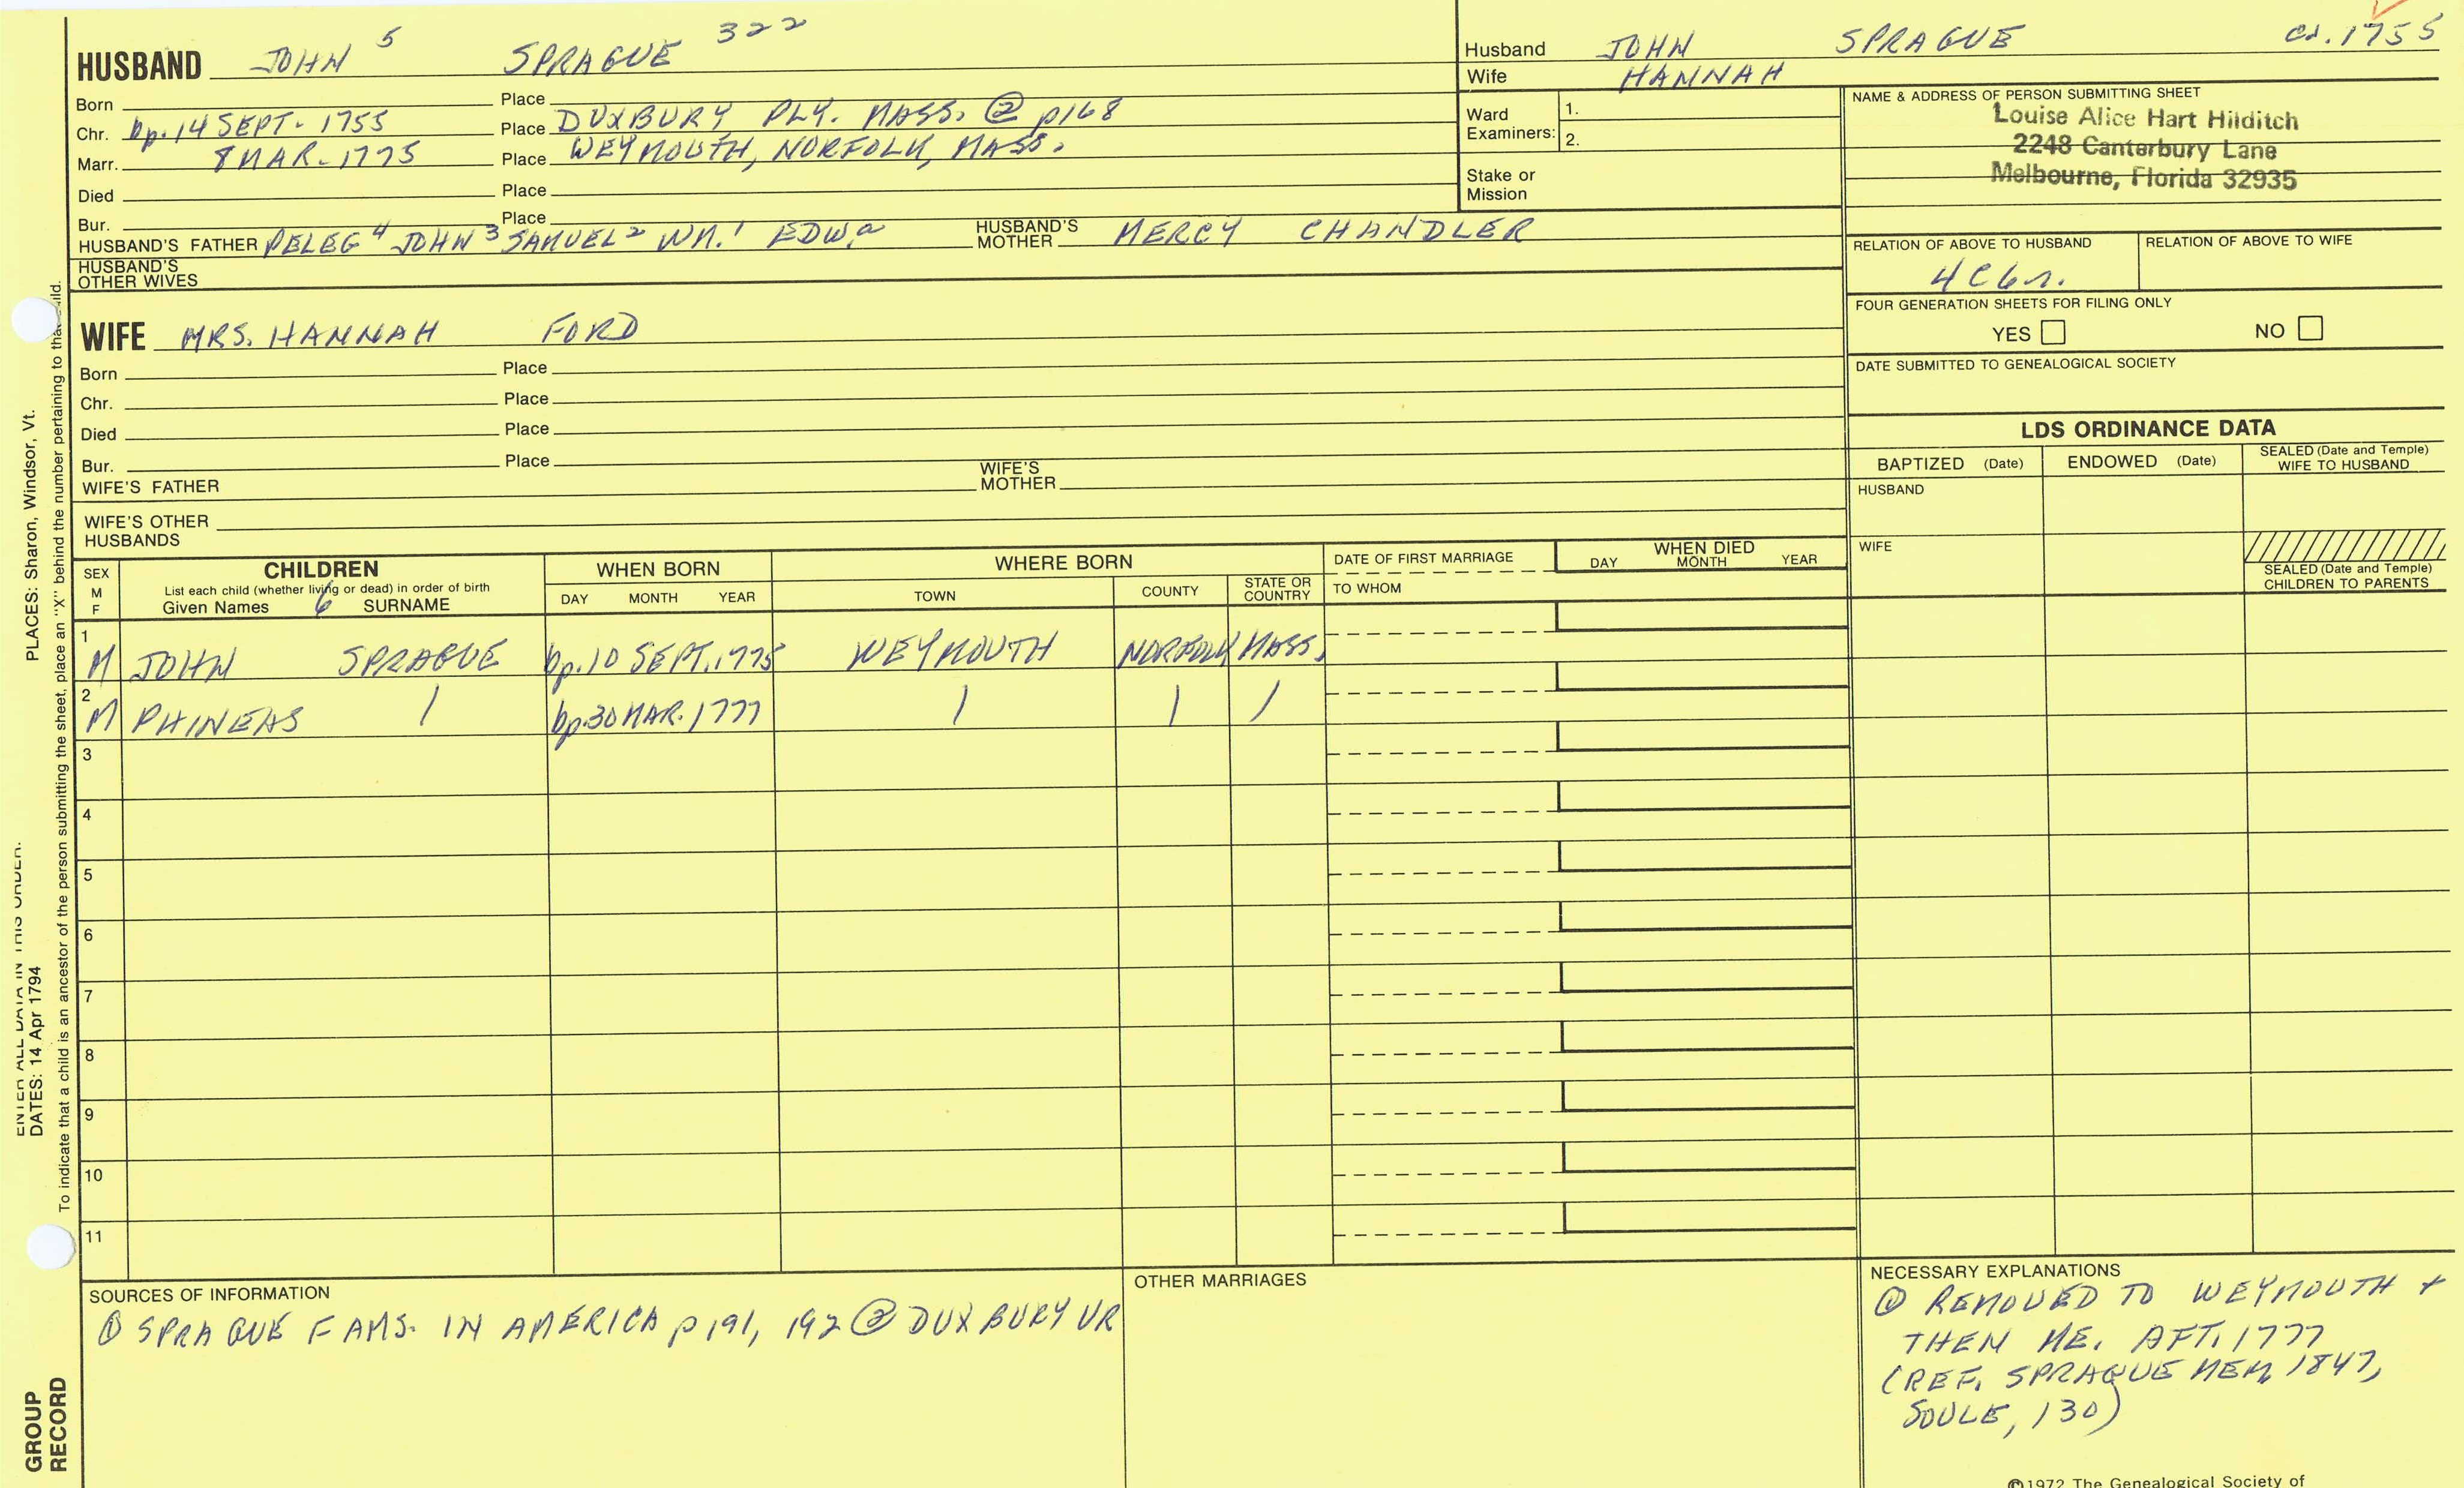 HUSBAND JOHN 5 SPRAGUE 322
Born Place
Chr. bp. 14 SEPT. 1755 Place DUXBURY PLY. MASS. ② p168
Marr. 8 MAR. 1775 Place WEYMOUTH, NORFOLK, MASS.
Died Place
Bur. Place
HUSBAND'S FATHER PELEG 4 JOHN 3 SAMUEL 2 WM. 1 EDW. a HUSBAND'S MOTHER MERCY CHANDLER
HUSBAND'S OTHER WIVES
Husband JOHN SPRAGUE ca. 1755
Wife HANNAH
Ward Examiners: 1.
2.
Stake or Mission
NAME & ADDRESS OF PERSON SUBMITTING SHEET
Louise Alice Hart Hilditch
2248 Canterbury Lane
Melbourne, Florida 32935
RELATION OF ABOVE TO HUSBAND RELATION OF ABOVE TO WIFE
4C6r.
FOUR GENERATION SHEETS FOR FILING ONLY
YES NO
DATE SUBMITTED TO GENEALOGICAL SOCIETY
WIFE MRS. HANNAH FORD
Born Place
Chr. Place
Died Place
Bur. Place
WIFE'S FATHER WIFE'S MOTHER
WIFE'S OTHER HUSBANDS
LDS ORDINANCE DATA
BAPTIZED (Date) ENDOWED (Date) SEALED (Date and Temple) WIFE TO HUSBAND
HUSBAND
WIFE
SEALED (Date and Temple) CHILDREN TO PARENTS
SEX M F
CHILDREN
List each child (whether living or dead) in order of birth
Given Names 6 SURNAME
WHEN BORN
DAY MONTH YEAR
WHERE BORN
TOWN COUNTY STATE OR COUNTRY
DATE OF FIRST MARRIAGE
TO WHOM
WHEN DIED
DAY MONTH YEAR
1 M JOHN SPRAGUE bp. 10 SEPT. 1775 WEYMOUTH NORFOLK MASS.
2 M PHINEAS / bp. 30 MAR. 1777 / / /
3
4
5
6
7
8
9
10
11
SOURCES OF INFORMATION
① SPRAGUE FAMS. IN AMERICA p 191, 192 ② DUXBURY VR
OTHER MARRIAGES
NECESSARY EXPLANATIONS
① REMOVED TO WEYMOUTH +
THEN ME. AFT. 1777
(REF. SPRAGUE MEM. 1847,
SOULE, 130)
©1972 The Genealogical Society of
PLACES: Sharon, Windsor, Vt.
DATES: 14 Apr 1794
ENTER ALL DATA IN THIS ORDER:
To indicate that a child is an ancestor of the person submitting the sheet, place an "X" behind the number pertaining to that child.
GROUP
RECORD